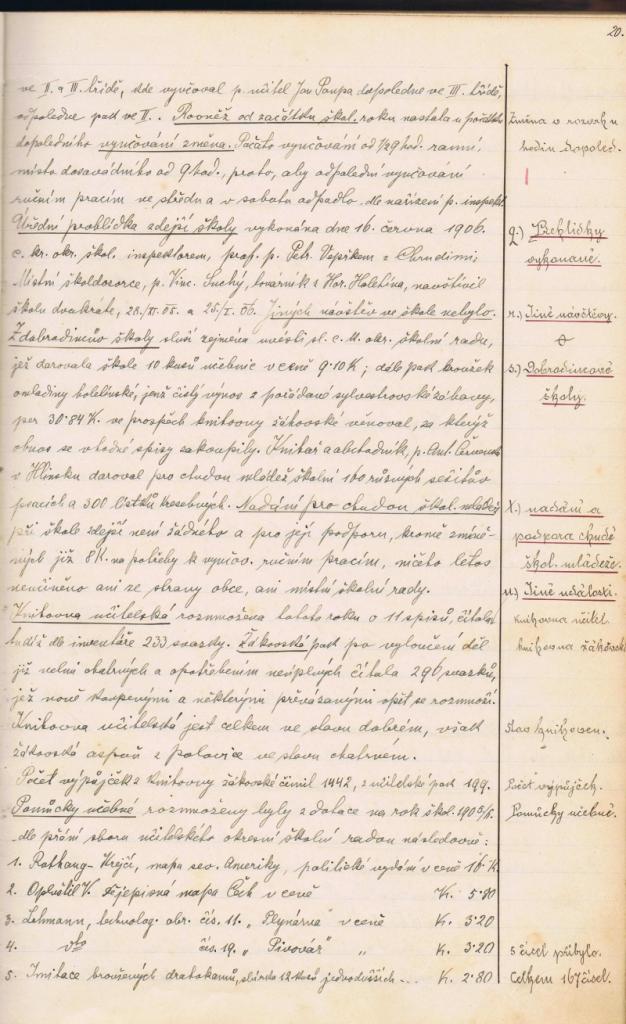 20.
ve II. a III. třídě, kde vyučoval p. učitel Jan Poupa dopoledne ve III. třídě,
odpoledne pak ve II. . Rovněž od začátku škol. roku nastala u počátku
dopoledního vyučování změna. Počato vyučování od 1/2 9 hod. ranní,
místo dosavádního od 9 hod., proto, aby odpolední vyučování
ručním pracím ve středu a v sobotu odpadlo dle nařízení p. inspekt.
Úřední prohlídka zdejší školy vykonána dne 16. června 1906.
c. kr. okr. škol. inspektorem, prof. p. Petr. z Chrudimi;
Místní školdozorce, p. Vinc. Suchý, továrník z Hor. Holetína, navštívil
školu dvakráte, 28./XI. 05. a 25./I. 06. Jiných návštěv ve škole nebylo.
Z dobrodinců školy sluší zejména uvésti sl. c. k. okr. školní radu,
jež darovala škole 10 kusů učebnic v ceně 9·10 K; dále pak kroužek
omladiny holetínské, jenž čistý výnos z pořádané sylvestrovské zábavy,
per 30·84 K. ve prospěch knihovny žákovské věnoval, za kterýž
obnos se vhodné spisy zakoupily. Knihař a obchodník, p. Ant.
v Hlinsku daroval pro chudou mládež školní 160 různých sešitův
psacích a 300 lístků kresebných. Nadání pro chudou škol. mládež
při škole zdejší není žádného a pro její podporu, kromě zmíně-
ných již 8 K. na potřeby k vyučov. ručním pracím, ničeho letos
neučiněno ani ze strany obce, ani místní školní rady.
Knihovna učitelská rozmnožena tohoto roku o 11 spisů, čítala
tudíž dle inventáře 233 svazky. Žákovská pak po vyloučení děl
již velmi chatrných a opotřebením neúplných čítala 296 svazků,
jež nově koupenými a některými převázanými opět se rozmnoží.
Knihovna učitelská jest celkem ve stavu dobrém, však
žákovská aspoň z polovice ve stavu chatrném.
Počet výpůjček z knihovny žákovské činil 1442, z učitelské pak 199.
Pomůcky učebné rozmnoženy byly z dotace na rok škol. 1905/6.
dle přání sboru učitelského okresní školní radou následovně:
1. Rothaug - Krejčí, mapa sev. Ameriky, politické vydání v ceně 16· K.
2. V. Dějepisná mapa Čech v ceně K. 5·80
3. Lehmann, technolog. obr. čís. 11. „Plynárna" v ceně K. 3·20
4. dto čís. 19. „Pivovár" „ K. 3·20
5. Imitace broušených drahokamů, sbírka 12 kusů jednodušších - .. K. 2·80
Změna v rozvrhu
hodin dopoled.
q.) Prohlídky
vykonané.
r.) Jiné návštěvy.
s.) Dobrodincové
školy.
t.) nadání a
podpora chudé
škol. mládeže.
u.) Jiné události.
knihovna učitel.
knihovna žákovsk.
Stav knihoven.
Počet výpůjček.
Pomůcky učebné.
5 čísel přibylo.
Celkem 167 čísel.